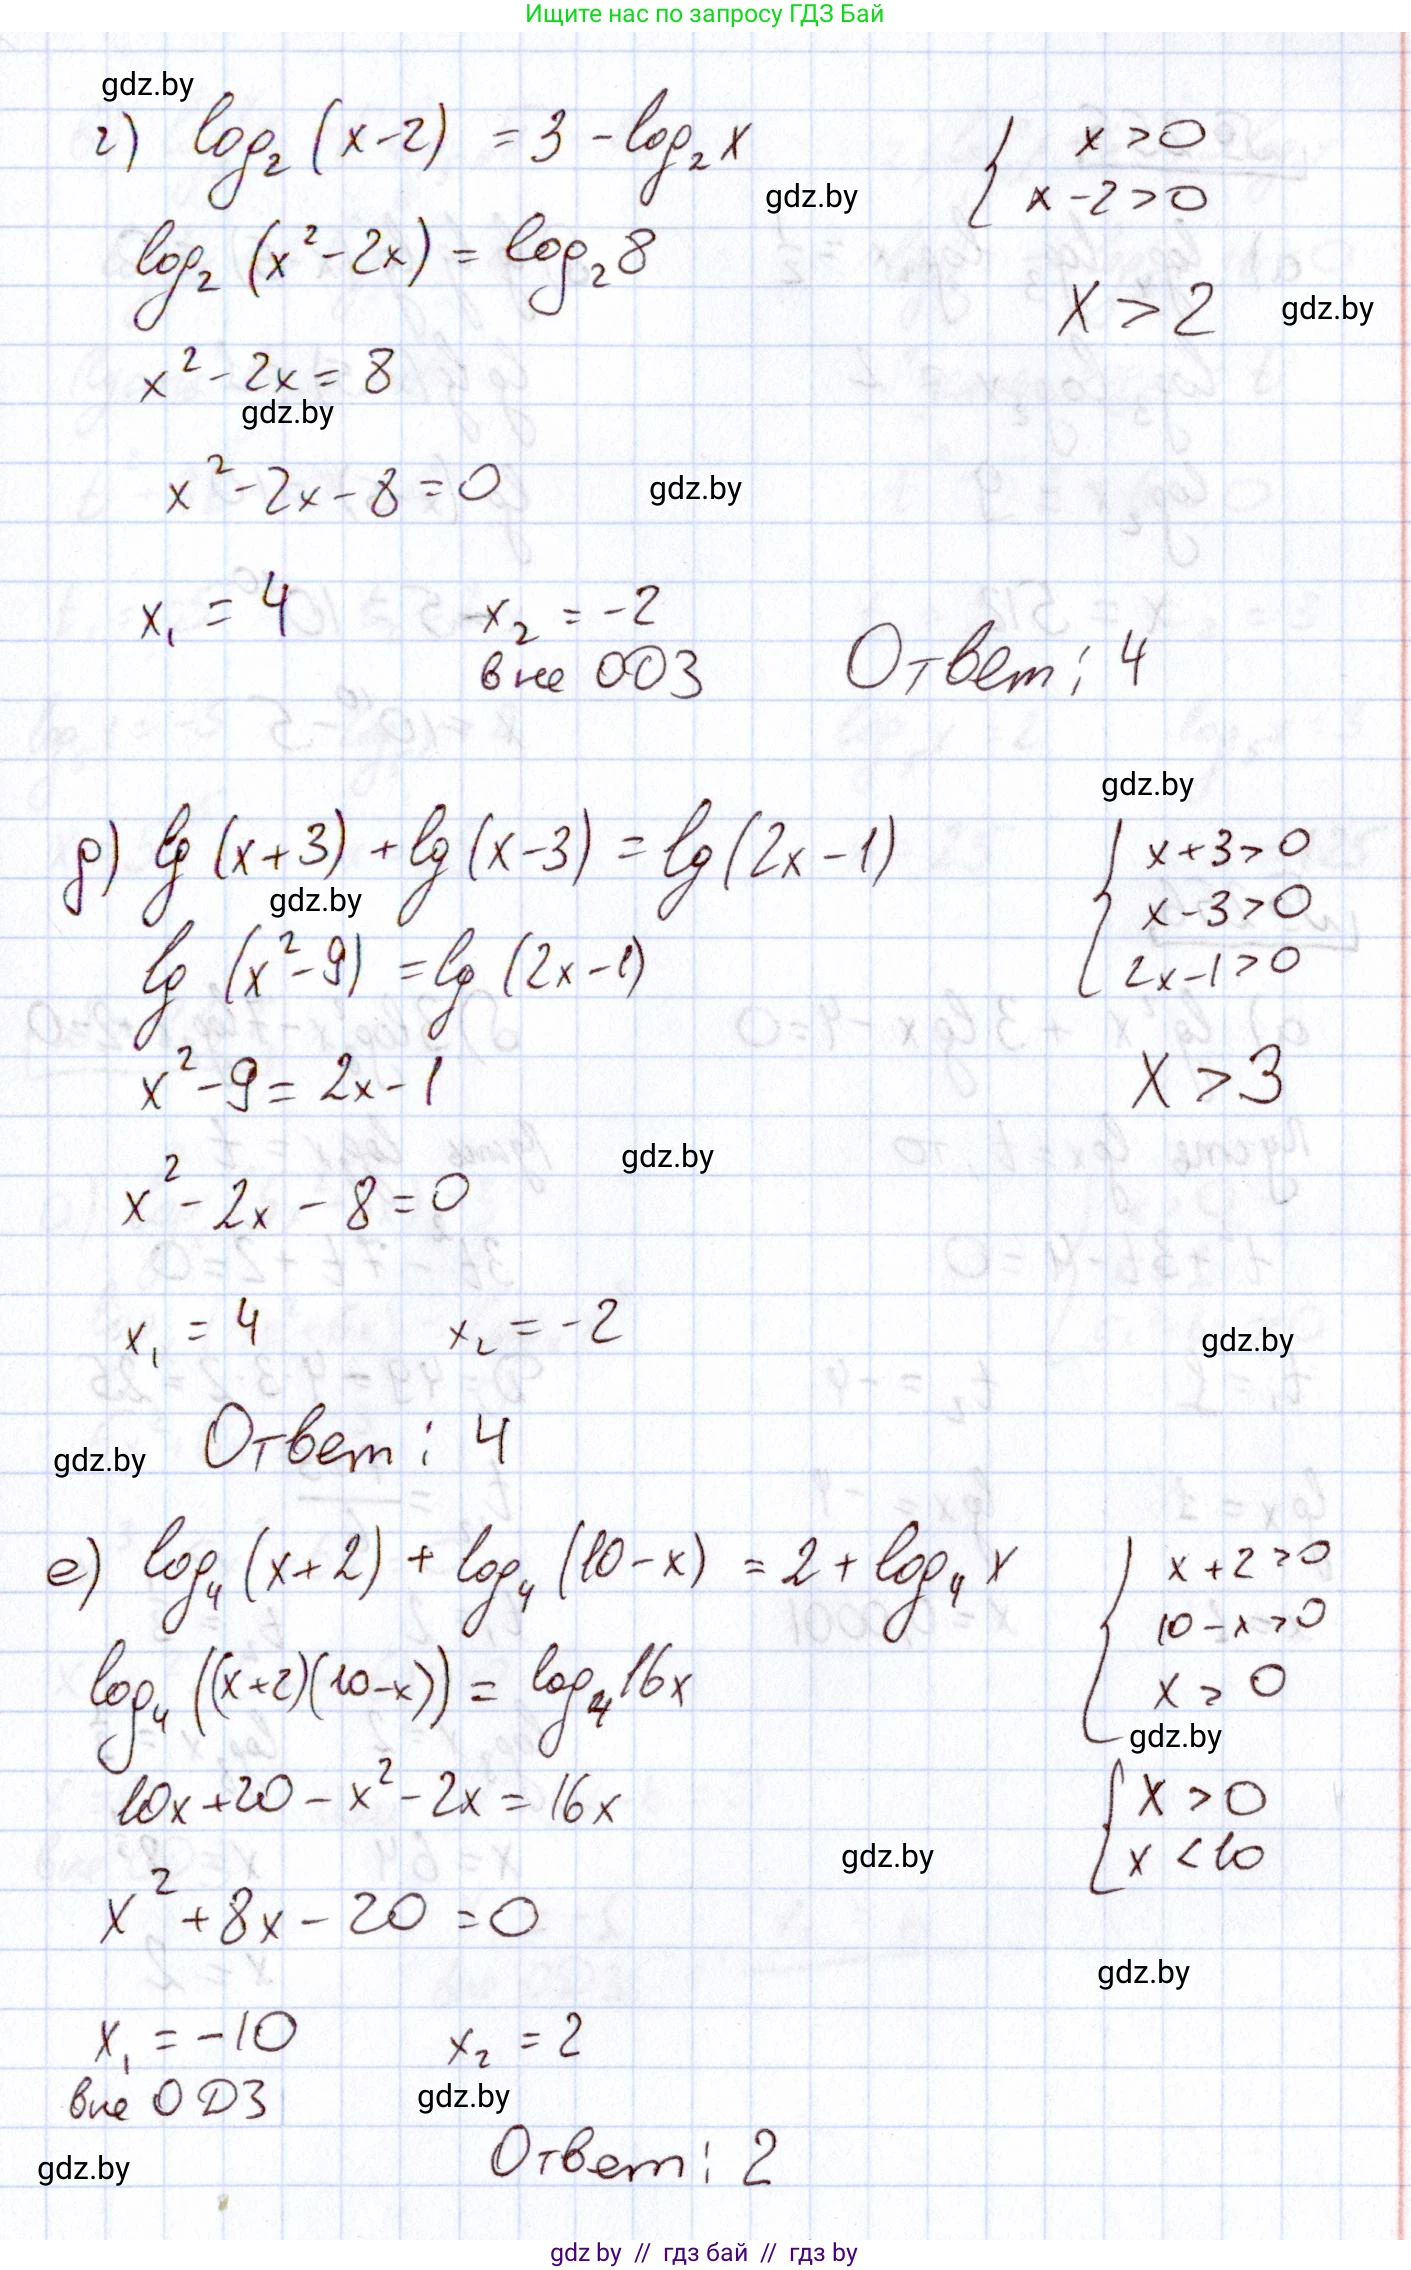 Ищите нас по запросу ГДЗ Бай
gdz.by
г) log₂ (x-2) = 3 - log₂ x
{ x > 0
x - 2 > 0
gdz.by
log₂ (x² - 2x) = log₂ 8
x > 2
gdz.by
x² - 2x = 8
gdz.by
x² - 2x - 8 = 0
gdz.by
x₁ = 4 x₂ = -2
вне ОДЗ
Ответ: 4
gdz.by
д) lg (x+3) + lg (x-3) = lg (2x-1)
{ x + 3 > 0
x - 3 > 0
2x - 1 > 0
gdz.by
lg (x² - 9) = lg (2x-1)
x² - 9 = 2x - 1
x > 3
gdz.by
x² - 2x - 8 = 0
x₁ = 4 x₂ = -2
gdz.by
Ответ: 4
gdz.by
е) log₄ (x+2) + log₄ (10-x) = 2 + log₄ x
{ x + 2 > 0
10 - x > 0
x > 0
log₄ ((x+2)(10-x)) = log₄ 16x
gdz.by
10x + 20 - x² - 2x = 16x
{ x > 0
x < 10
gdz.by
x² + 8x - 20 = 0
gdz.by
x₁ = -10 x₂ = 2
вне ОДЗ
gdz.by
Ответ: 2
gdz.by
gdz by // гдз бай // гдз by